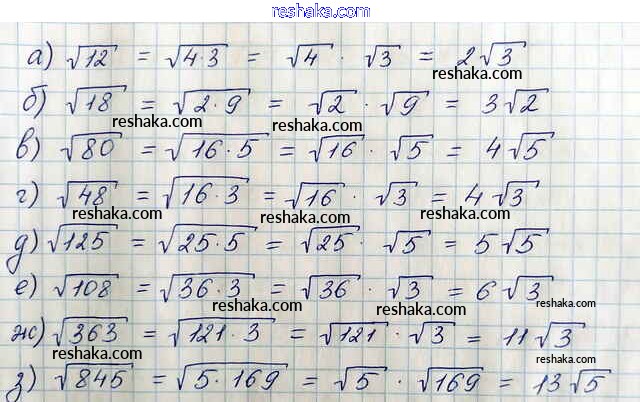 reshaka.com
а) √12 = √4·3 = √4 · √3 = 2√3
reshaka.com
reshaka.com
б) √18 = √2·9 = √2 · √9 = 3√2
reshaka.com
reshaka.com
в) √80 = √16·5 = √16 · √5 = 4√5
reshaka.com
г) √48 = √16·3 = √16 · √3 = 4√3
reshaka.com
reshaka.com
reshaka.com
д) √125 = √25·5 = √25 · √5 = 5√5
reshaka.com
reshaka.com
е) √108 = √36·3 = √36 · √3 = 6√3
reshaka.com
reshaka.com
reshaka.com
ж) √363 = √121·3 = √121 · √3 = 11√3
reshaka.com
reshaka.com
з) √845 = √5·169 = √5 · √169 = 13√5
reshaka.com